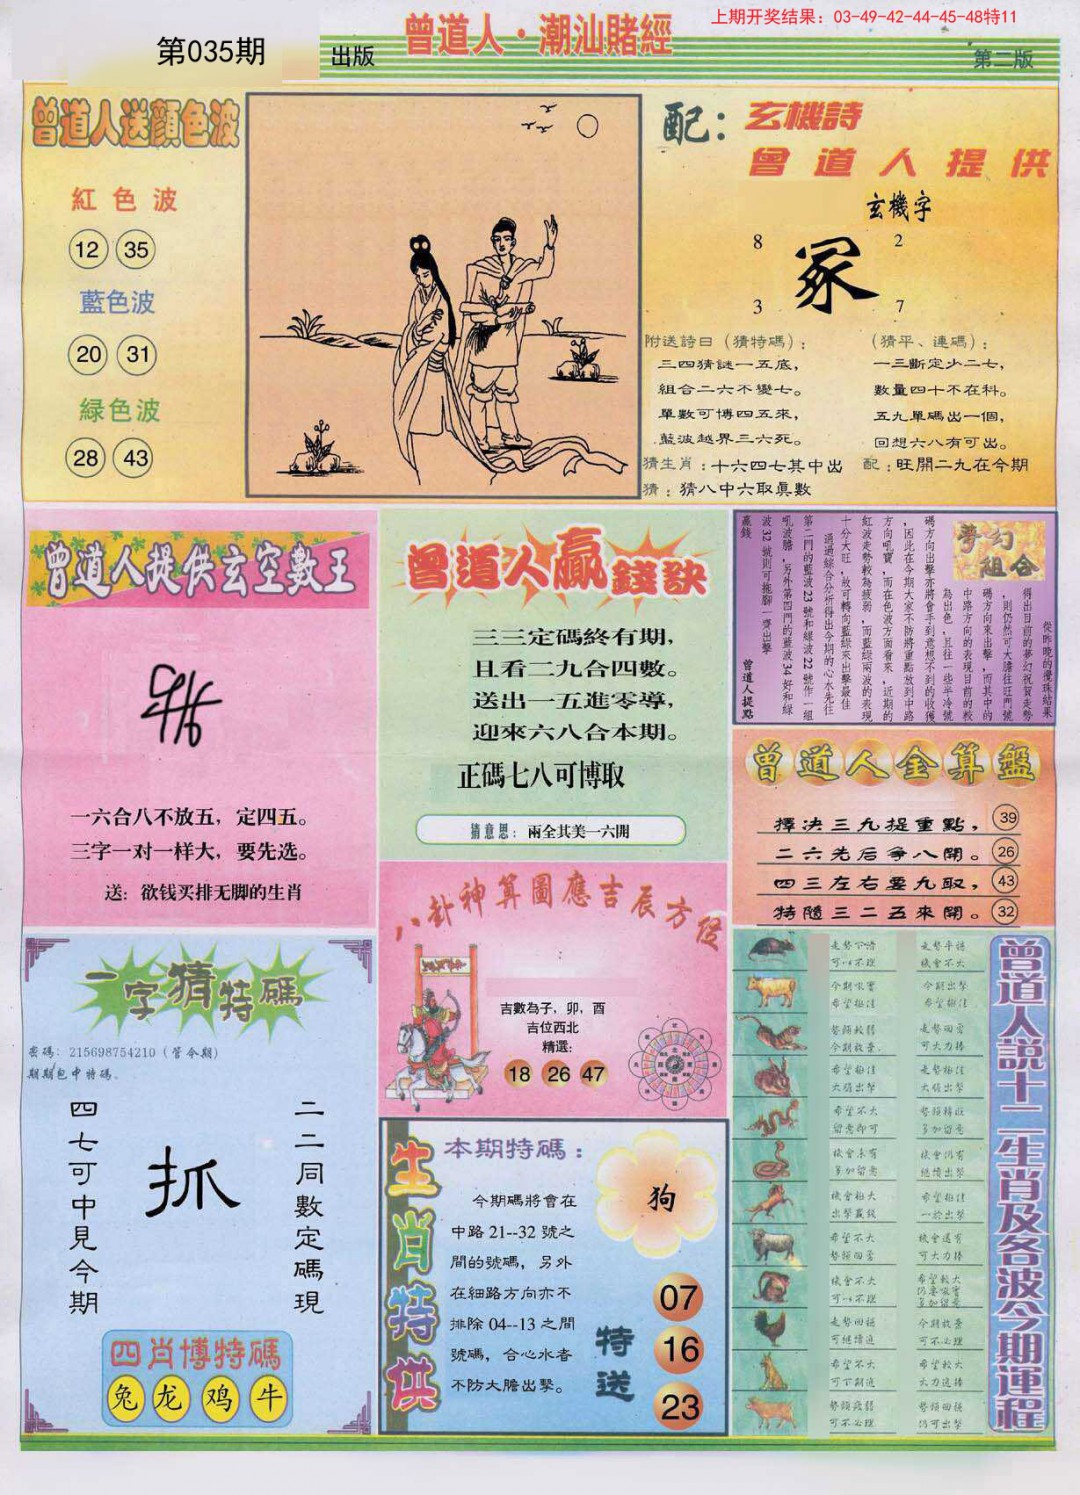 上期开奖结果：03-49-42-44-45-48特11
第035期
出版
曾道人·潮汕賭經
第二版
曾道人送顔色波
紅色波
12 35
藍色波
20 31
緑色波
28 43
配：玄機詩
曾道人提供
玄機字
8 2
冢
3 7
附送詩日（猜特碼）：
三四猜謎一五底，
組合二六不變七。
單數可博四五來，
藍波越界三六死。
猜生肖：十六四七其中出
猜：猜八中六取眞數
（猜平、連碼）：
一三斷定少二七，
數量四十不在科。
五九單碼出一個，
回想六八有可出。
配：旺開二九在今期
曾道人提供玄空數王
一六合八不放五，定四五。
三字一对一样大，要先选。
送：欲钱买排无脚的生肖
曾道人贏錢訣
三三定碼終有期，
且看二九合四數。
送出一五進零導，
迎來六八合本期。
正碼七八可博取
猜意思：兩全其美一六開
夢幻組合
從昨晚的攪珠結果
得出目前的夢幻祝賀走勢
，則仍然可大膽往旺門號
碼方向來出擊，而其中的
中路方向的表現目前的較
為出色，且往一些半冷號
碼方向出擊亦將會手到意想不到的收獲
，因此在今期大家不防將重點放到中路
方向吼實，而在色波方面看來，近期的
紅波走勢較為疲弱，而藍綠兩波的表現
十分大旺，故可轉向藍綠來出擊最佳
通過綜合分析得出今期的心水先往
第二門的藍波23號和綠波22號作一組
吼波膽，另外第四門的藍波34好和綠
波32號則可拖腳一齊出擊
贏錢
曾道人提點
曾道人金算盤
擇决三九捉重點， 39
二六先后争八開。 26
四三左右要九取， 43
特隨三二五來開。 32
八卦神算圖應吉辰方位
吉數為子，卯，酉
吉位西北
精選：
18 26 47
一字猜特碼
密碼：215698754210（管令期）
期期包中特碼．
四七可中見今期
抓
二二同數定碼現
四肖博特碼
兔 龙 鸡 牛
生肖特供
本期特碼：
今期碼將會在
中路21--32號之
間的號碼，另外
在細路方向亦不
排除04--13之間
號碼，合心水者
不防大膽出擊。
狗
特送
07
16
23
曾道人説十二生肖及各波今期運程